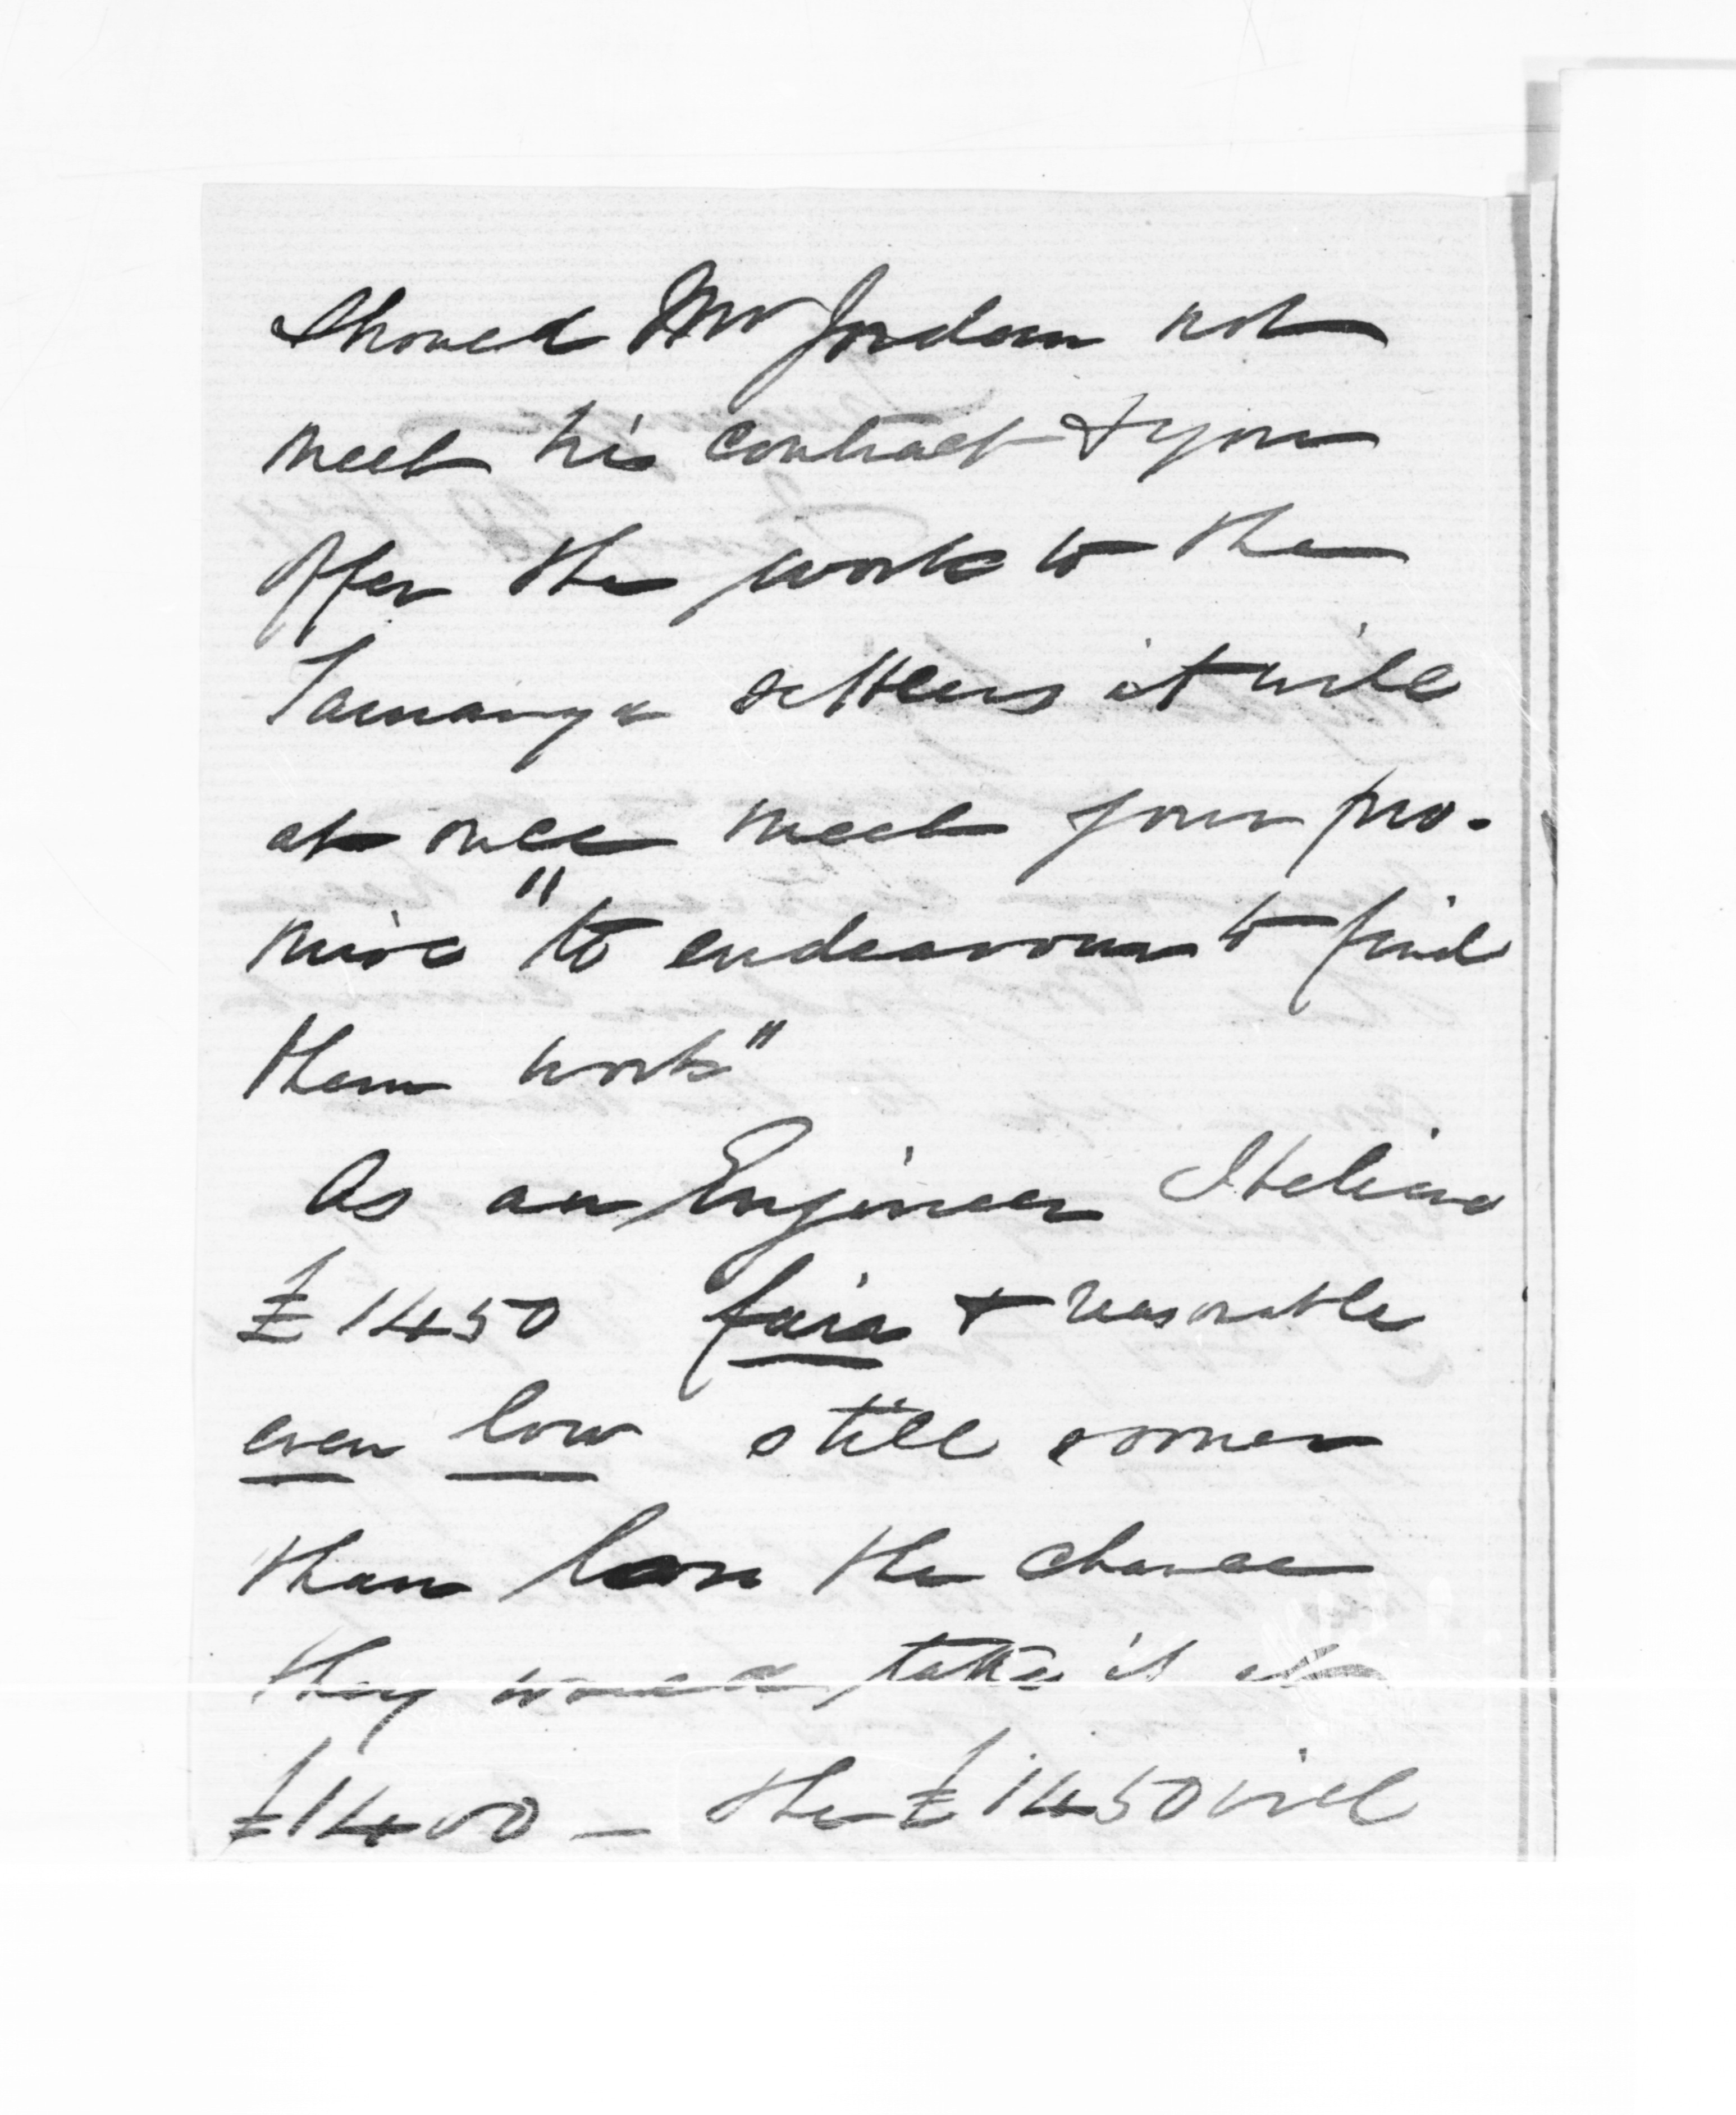 Should Mr Jordan not
meet his contract & you
offer the work to the
Taunanga settlers it will
at once meet your pro-
mise "to endeavour to find
them work"
As an Engineer I believe
£1450 fair & reasonable
even low still sooner
than lose the chance
they would take it at
£1400 _ the £1450 will